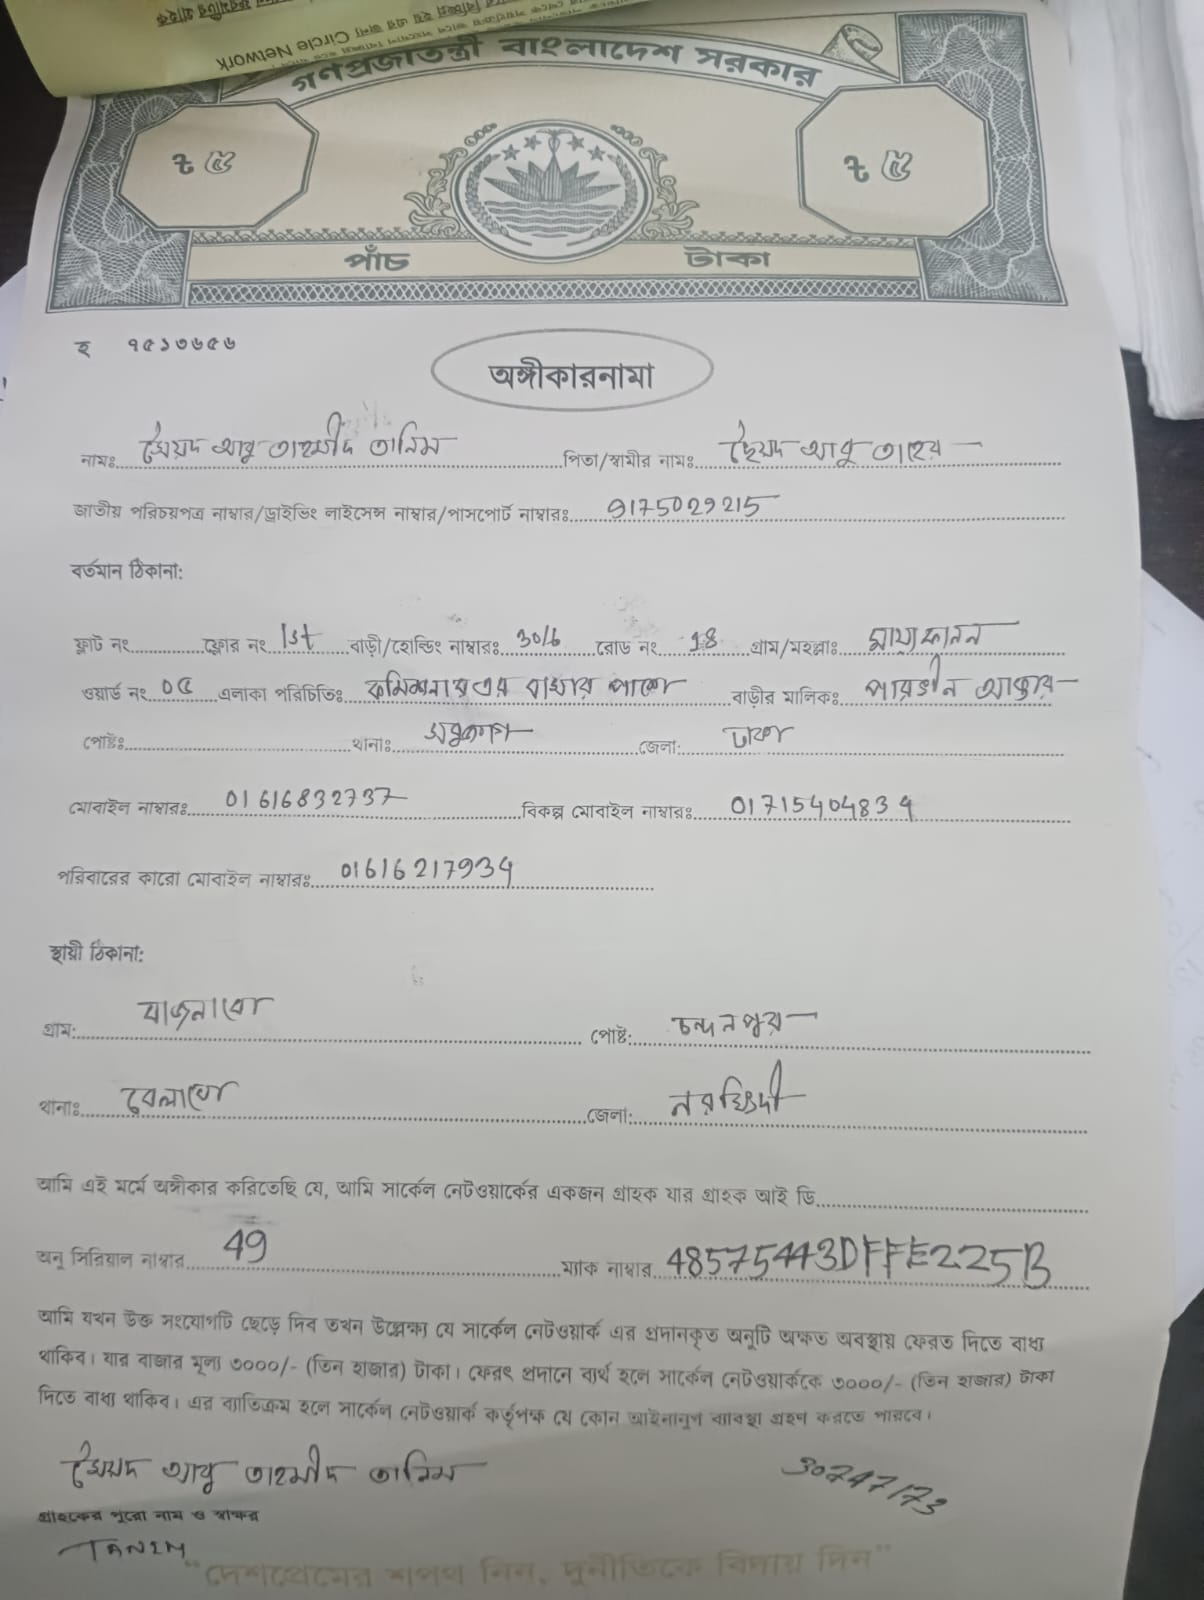 Circle Network
গণপ্রজাতন্ত্রী বাংলাদেশ সরকার
৳ ৫ ৳ ৫
পাঁচ টাকা
হ ৭৫১৩৬৫৬
অঙ্গীকারনামা
নামঃ সৈয়দ আবু তাহমীদ তানিম পিতা/স্বামীর নামঃ ছৈয়দ আবু তাহের
জাতীয় পরিচয়পত্র নাম্বার/ড্রাইভিং লাইসেন্স নাম্বার/পাসপোর্ট নাম্বারঃ 9175029215
বর্তমান ঠিকানা:
ফ্লাট নং ফ্লোর নং 1st বাড়ী/হোল্ডিং নাম্বারঃ 30/6 রোড নং 18 গ্রাম/মহল্লাঃ মায়াকানন
ওয়ার্ড নং ০৫ এলাকা পরিচিতিঃ কমিশনার এর বাসার পাশে বাড়ীর মালিকঃ পারভীন আক্তার
পোষ্টঃ থানাঃ সবুজবাগ জেলা: ঢাকা
মোবাইল নাম্বারঃ 01616832737 বিকল্প মোবাইল নাম্বারঃ 01715404834
পরিবারের কারো মোবাইল নাম্বারঃ 01616217934
স্থায়ী ঠিকানা:
গ্রাম: বাজনাবো পোষ্ট: চন্দনপুর
থানাঃ বেলাবো জেলা: নরসিংদী
আমি এই মর্মে অঙ্গীকার করিতেছি যে, আমি সার্কেল নেটওয়ার্কের একজন গ্রাহক যার গ্রাহক আই ডি
অনু সিরিয়াল নাম্বার 49 ম্যাক নাম্বার 48575443DFFE225B
আমি যখন উক্ত সংযোগটি ছেড়ে দিব তখন উল্লেক্ষ্য যে সার্কেল নেটওয়ার্ক এর প্রদানকৃত অনুটি অক্ষত অবস্থায় ফেরত দিতে বাধ্য
থাকিব। যার বাজার মূল্য ৩০০০/- (তিন হাজার) টাকা। ফেরৎ প্রদানে ব্যর্থ হলে সার্কেল নেটওয়ার্ককে ৩০০০/- (তিন হাজার) টাকা
দিতে বাধ্য থাকিব। এর ব্যাতিক্রম হলে সার্কেল নেটওয়ার্ক কর্তৃপক্ষ যে কোন আইনানুগ ব্যাবস্থা গ্রহণ করতে পারবে।
সৈয়দ আবু তাহমীদ তানিম 30747173
গ্রাহকের পুরো নাম ও স্বাক্ষর
TANIM
"দেশপ্রেমের শপথ নিন, দুর্নীতিকে বিদায় দিন"